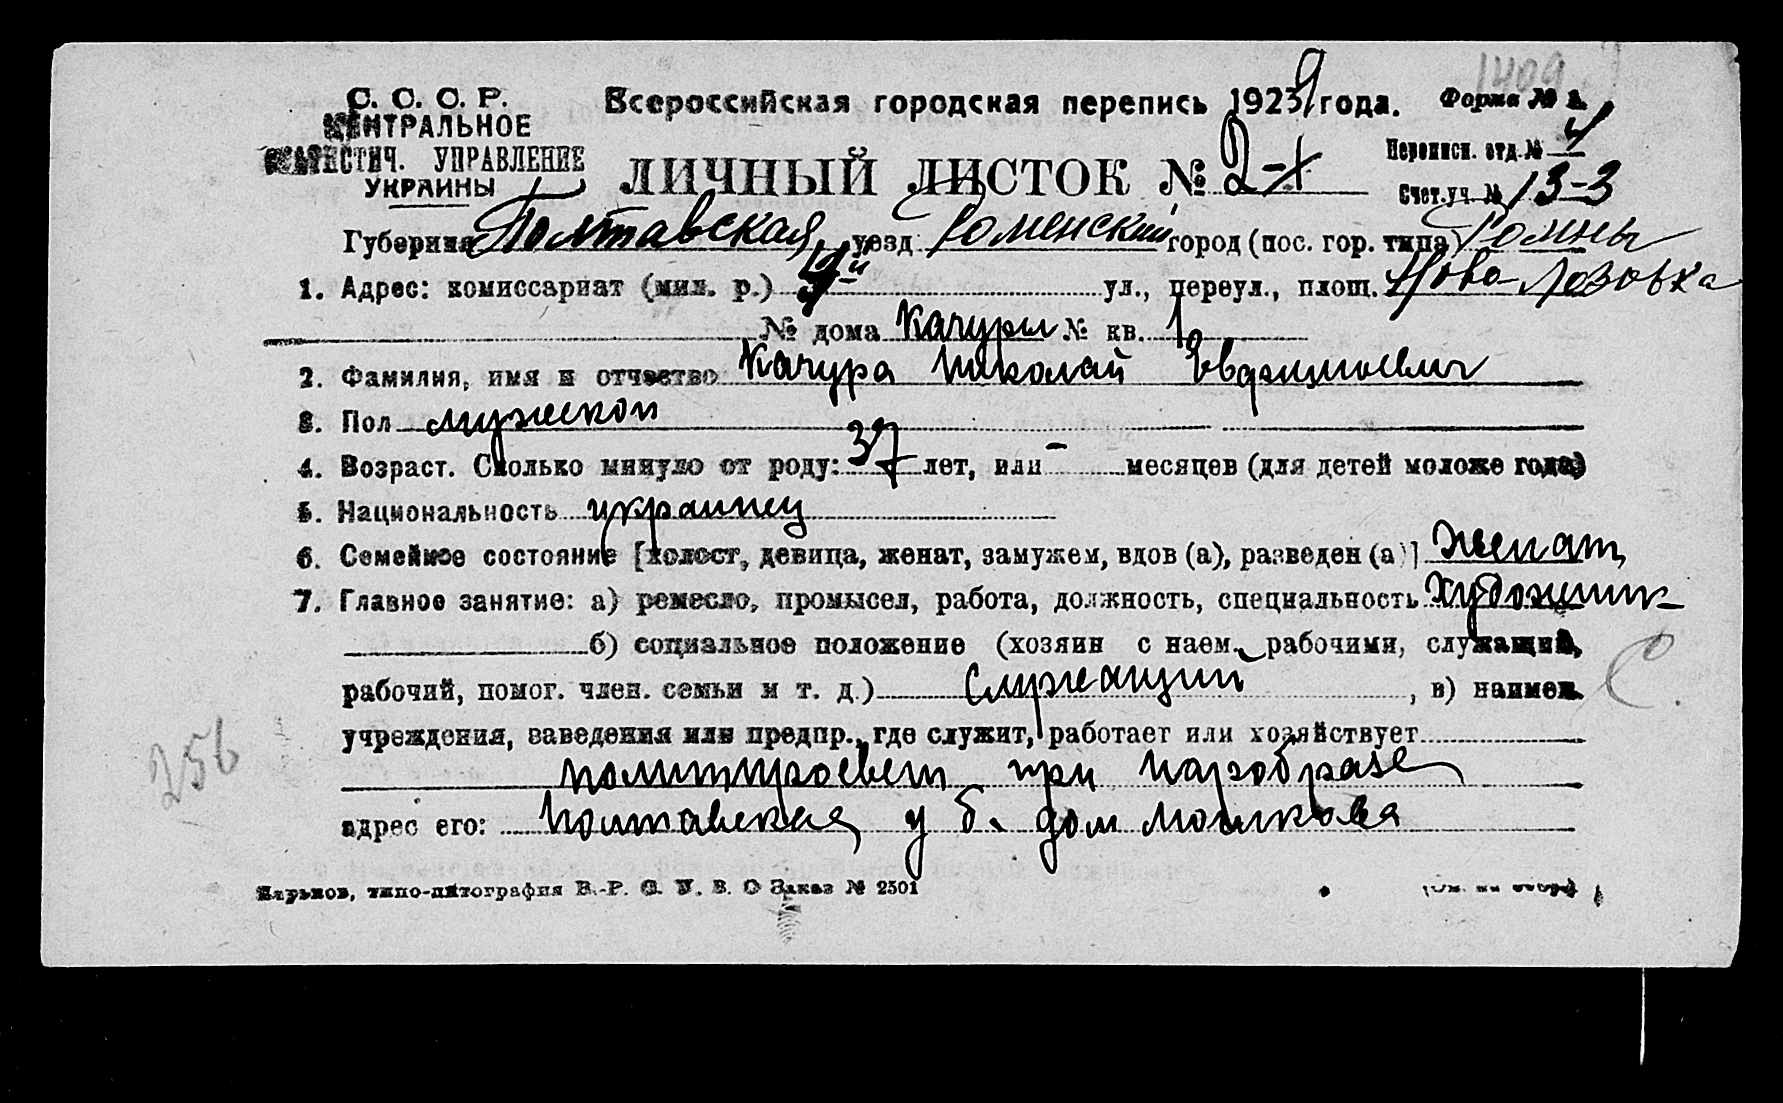 1409
С. С. С. Р.
ЦЕНТРАЛЬНОЕ
СТАТИСТИЧ. УПРАВЛЕНИЕ
УКРАИНЫ
Всероссийская городская перепись 1923 года. Форма № 1.
ЛИЧНЫЙ ЛИСТОК № 2-х
Переписн. отд. № 4
Счет. уч. № 13-3
Губерния Полтавская, уезд Роменский город (пос. гор. типа) Ромны
1. Адрес: комиссариат (мил. р.) ул., переул., площ. Ново-Лозовка
№ дома Качуры № кв. 1
2. Фамилия, имя и отчество Качура Николай
3. Пол мужской
4. Возраст. Сколько минуло от роду: 37 лет, или - месяцев (для детей моложе года)
5. Национальность украинец
6. Семейное состояние [холост, девица, женат, замужем, вдов (а), разведен (а)] женат
7. Главное занятие: а) ремесло, промысел, работа, должность, специальность художник
б) социальное положение (хозяин с наем. рабочими, служащий,
рабочий, помог. член. семьи и т. д.) служащий, в) наимен.
учреждения, заведения или предпр., где служит, работает или хозяйствует
политпросвет при наробразе
адрес его: Полтавская у б. дом Мошкова
256
Харьков, типо-литография В.-Р. С. У. В. О Заказ № 2501